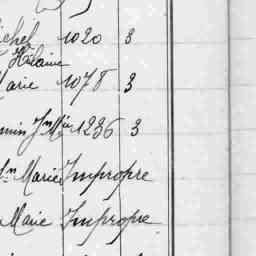 ichel 1020 3
Hilaire
Marie 1078 3
min Jn Mie 1236 3
Jn Marie Impropre
Marie Impropre